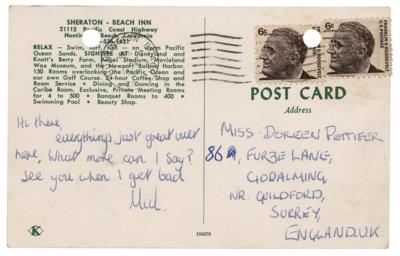 SHERATON - BEACH INN
21112 Pacific Coast Highway
Beach, California
RELAX - Swim, Surf, Fish - on warm Pacific
Ocean Sands. SIGHTSEE AT: Disneyland and
Knott's Berry Farm, Angel Stadium, Movieland
Wax Museum, and the Newport Balboa Harbor.
150 Rooms overlooking the Pacific Ocean and
our own Golf Course. 24-hour Coffee Shop and
Room Service • Dining and Dancing in the
Caribe Room. Exclusive, Private Meeting Rooms
for 4 to 500 • Banquet Rooms to 400 •
Swimming Pool • Beauty Shop.
Hi there,
everythings just great over
here, What more can I say?
See you when I get back
6¢
6¢
FRANKLIN D. ROOSEVELT
POST CARD
Address
MISS. DOREEN PETTIFER
86, FURZE LANE,
GODALMING,
NR. GUILDFORD,
SURREY,
ENGLAND. UK.
K